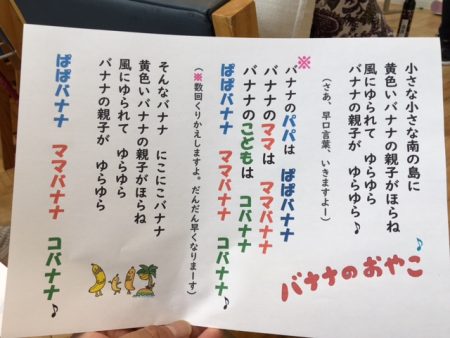 バナナのおやこ
小さな小さな南の島に
黄色いバナナの親子がほらね
風にゆられて ゆらゆら
バナナの親子が ゆらゆら♪
(さあ、早口言葉、いきますよー)
※
バナナのパパは ぱぱバナナ
バナナのママは ママバナナ
バナナのこどもは コバナナ
ぱぱバナナ ママバナナ コバナナ♪
(※数回くりかえしますよ。だんだん早くなりまーす)
そんなバナナ にこにこバナナ
黄色いバナナの親子がほらね
風にゆられて ゆらゆら
バナナの親子が ゆらゆら
ぱぱバナナ ママバナナ コバナナ♪